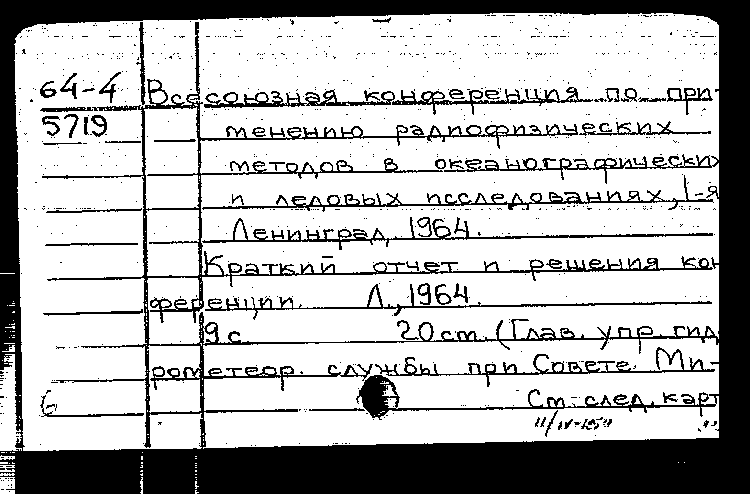 64-4 Всесоюзная конференция по при-
5719 менению радиофизических
методов в океанографических
и ледовых исследованиях, 1-я
Ленинград, 1964.
Краткий отчет и решения кон
ференции. Л., 1964.
9 с. 20 см. (Глав. упр. гид
рометеор. службы при Совете Ми-
6 См. след. карт